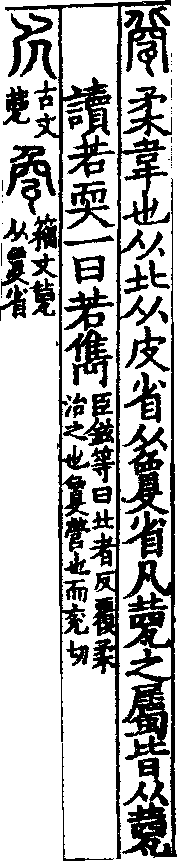 㼱柔韋也从北从皮省从夐省凡㼱之屬皆从㼱
讀若耎一曰若儁臣鉉等曰北者反覆柔
治之也夐營也而兖切
古文㼱
籒文㼱从夐省